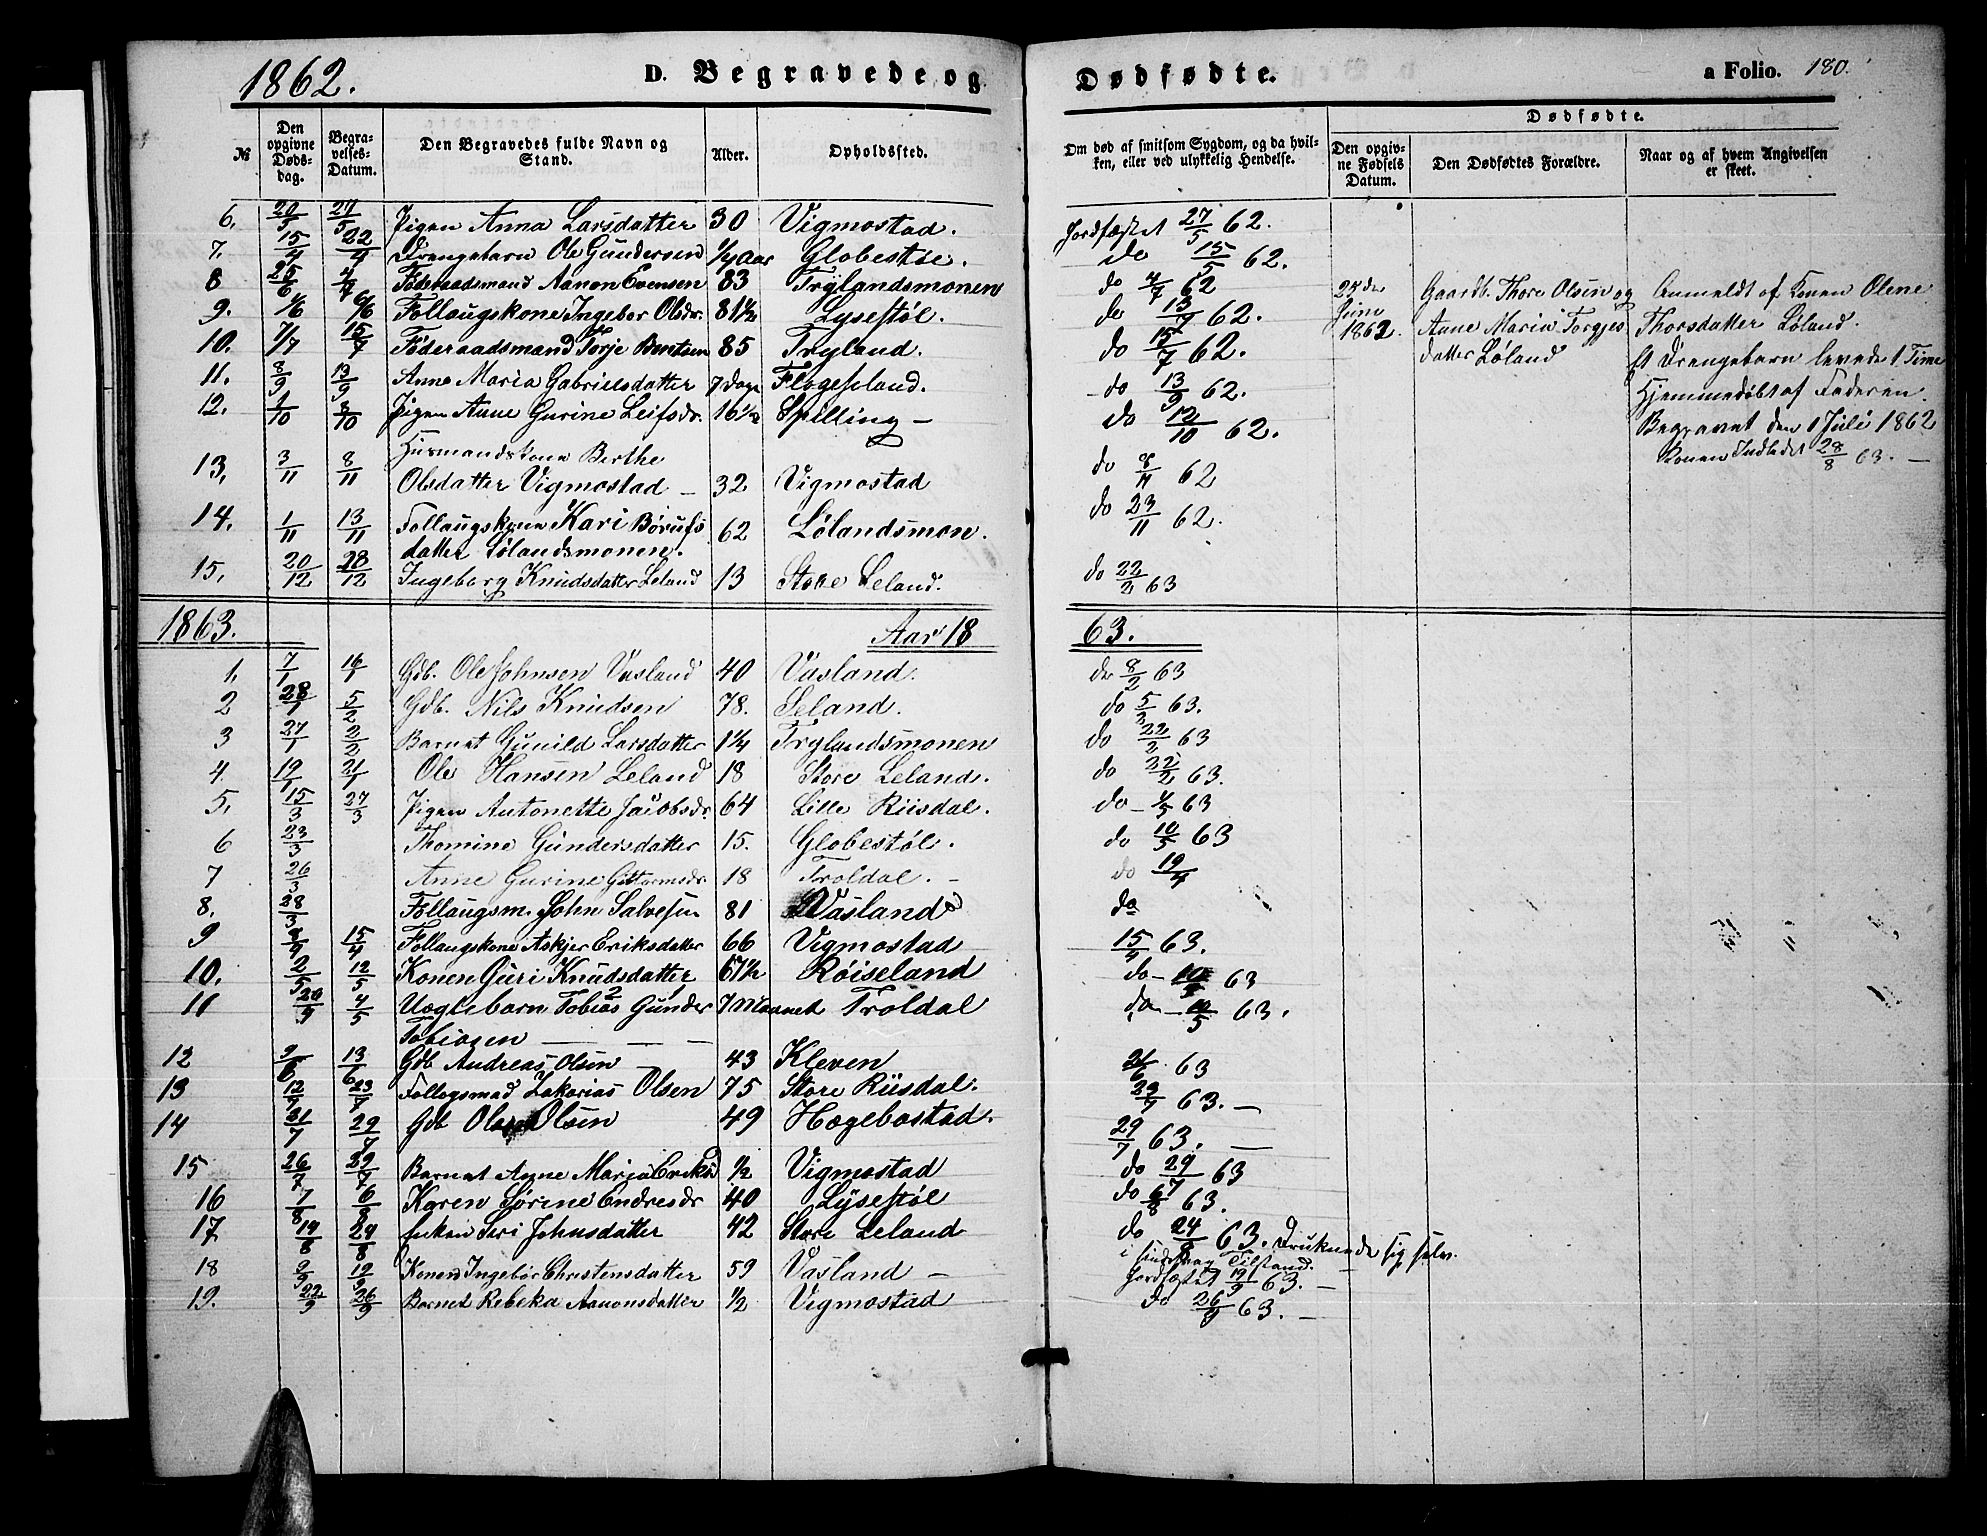 1862. D. Begravede og Dødfødte. a Folio. 180.
№ Den opgivne Døds-dag. Begra-velses-Datum. Den Begravedes fulde Navn og Stand. Alder. Opholdssted. Om død af smitsom Sygdom, og da hvil-ken, eller ved ulykkelig Hendelse. Dødfødte. Den opgiv-ne Fødsels Datum. Den Dødfødtes Forældre. Naar og af hvem Angivelsen er skeet.
6. 20/5 27/5 Pigen Anna Larsdatter 30 Vigmostad. Jordfæstet 27/5 62.
7. 15/4 22/4 Drengebarn Ole Gundersen 1/4 Aar Globestøe. do 15/5 62.
8 25/6 4/7 Føderaadsmand Aanon Evensen 83 Trylandsmonen do 4/7 62 Gaardb. Thore Olsen og Anmeldt af Konen Olene
9. 1/6 6/6 Follaugskone Ingebor Olsdr. 81 1/2 Lysestøl. do 13/7 62. Juni 1862. Anne Maria Torgjes Thorsdatter Løland.
10. 7/7 15/7 Føderaadsmand Torje Bentsen 85 Tryland. do 15/7 62. datter Løland Et Drengebarn levede 1 Time
11. 8/9 13/9 Anne Maria Gabrielsdatter 7 Dage Flogeland. do 13/9 62. Hjemmedøbt af Faderen.
12. 1/10 3/10 Pigen Anne Gurine Leifsdr. 16 1/2 Spilling – do 12/10 62. Begravet den 1 Juli 1862
Husmandskone Berthe Konen Indledet 28/8 63. –
13. 3/11 8/11 Olsdatter Vigmostad – 32 Vigmostad do 8/11 62
14. 1/11 13/11 Follaugskone Kari Børufs 62 Lølandsmon. do 23/11 62.
datter Lølandsmonen.
15. 20/12 28/12 Ingeborg Knudsdatter Leland 13 Store Leland. do 22/2 63
1863. Aar 1863.
1. 7/1 16/1 Gdb. Ole Johnsen Vasland 40 Vasland. do 8/2 63
2 28/1 5/2 Gdb. Nils Knudsen 78. Leland. do 5/2 63.
3 27/1 2/2 Barnet Gunild Larsdatter 1 1/4 Trylandsmonen do 22/2 63
4. 19/1 21/1 Ole Hansen Leland 18 Store Leland. do 22/2 63.
5. 15/3 27/3 Pigen Antonette Jacobsdr. 64 Lille Riisdal. do – 4/5 63
6 23/3 Thomine Gundersdatter 15. Globestøl. do 10/5 63
7 26/3 Anne Gurine Guttormsdr 18 Troldal. – do 19/4
8. 28/3 Follaugsm. John Salvesen 81 Vasland do
9 15/4 Follaugskone Askjer Eriksdatter 66 Vigmostad 15/4 63.
10. 2/5 12/5 Konen Guri Knudsdatter 67 1/2 Røiseland do – 10/5 63
11 4/5 Uægtebarn Tobias Gunder 7 Maaned Troldal do – 10/5 63.
Tobiasen – – –
12 9/6 13/6 Gdb Andreas Olsen – 43 Kleven 21/6 63
13 12/7 23/7 Follogsmad Zakarias Olsen 75 Store Riisdal. 23/7 63. –
14 21/7 29/7 Gdb Ole Olsen 49 Hægebostad. 29/7 63. –
15 26/7 29/7 Barnet Anne Maria Eriksd 1/2 Vigmostad do 29/7 63
16 7/8 6/8 Karen Sørine Endresdr 40 Lysestøl do 6/8 63.
17. 19/8 24/8 Enken Siri Johnsdatter 42 Store Leland do 24/8 63. Druknede sig selv.
i Sindssvag Tilstand.
18 9/9 19/9 Konen Ingebor Christensdatter 59 Vasland – Jordfæstet 19/9 63. –
19. 22/9 26/9 Barnet Rebeka Aanonsdatter 1/2 Vigmostad do 26/9 63. –